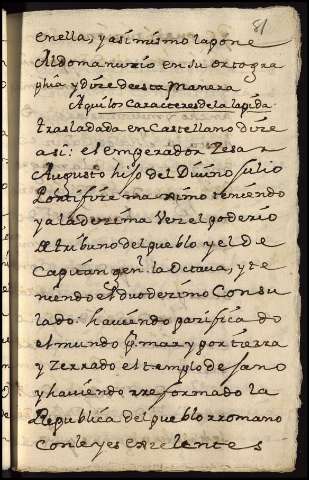 81
en ella, y asi mismo la pone
Aldo manuzio en su ortogra
phia y dize de esta manera
Aqui los caracteres de la lapida
trasladada en Castellano dize
asi: el emperador Zesar
Augusto hijo del Divino Julio
Pontifize maximo teniendo
ya la dezima vez el poderio
de tribuno del pueblo y el de
Capitan genl. la Octava, y te
niendo el duodezimo Consu
lado: haviendo parificado
el mundo por mar y por tierra
y Zerrado el templo de Jano
y haviendo rreformado la
Republica del pueblo rromano
con leyes exzelentes